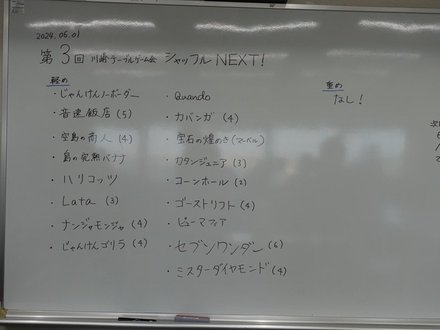 2024.05.01
第3回 川崎テーブルゲーム会 シャッフルNEXT!
軽め
・じゃんけんノーボーダー
・音速飯店 (5)
・空島の商人 (4)
・島の完熟バナナ
・ハリコッツ
・Lata (3)
・ナンジャモンジャ (4)
・じゃんけんゴリラ (4)
・Quando
・カバンガ (4)
・宝石の煌めき (マーベル)
・カタンジュニア (3)
・コーンホール (2)
・ゴーストリフト (4)
・ピューマフィア
・セブンワンダー (6)
・ミスターダイヤモンド (4)
重め
なし!